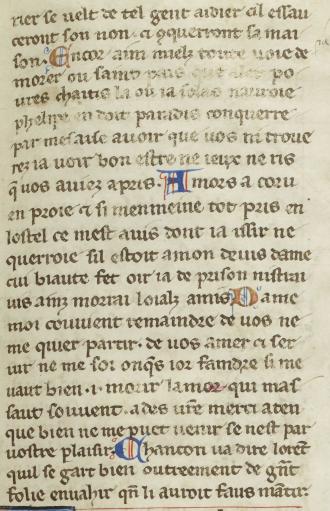 rier se uelt de tel gent aidier cil essau
ceront son non. ci 9querront sa mai
son. Encor aim mielz toute uoie de
morer ou saint païs que aler po
ures chaitis la ou ia solas nauroie
phelipe en doit paradis conquerre
par mesaise auoir que uos ni troue
rez ia uoir bon estre ne ieux ne ris
q̄ uos auiez apris. Amors a coru
en proie et si menmeine tot pris en
lostel ce mest auis dont ia issir ne
querroie sil estoit a mon deuis dame
cui biaute fet oir ia de prison nistrai
uis ainz morrai loialz amis. Dame
moi couuient remaindre de uos ne
me quier partir. de uos amer et ser
uir ne me soi onq̄s ior faindre si me
uaut bien .i. morir lamor qui mas
saut souuent. ades ur̄e merci aten
que bien ne me puet uenir se nest par
uostre plaisir. Chancon ua dire loren̄t
quil se gart bien outreement de gn̄t
folie enuahir qn̄ li auroit faus mantir.